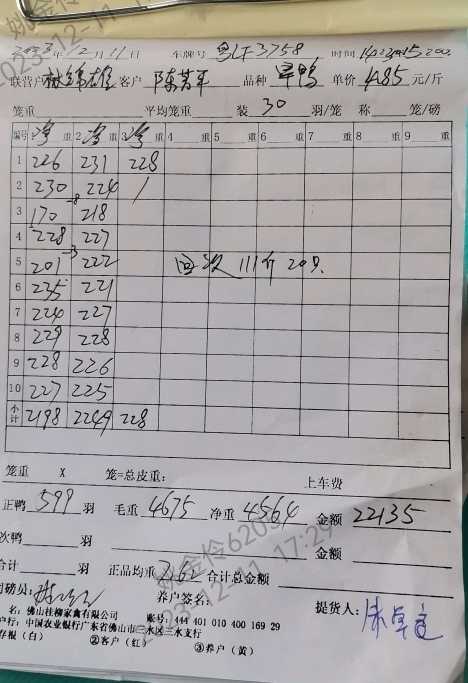 2023年12月11日 车牌号 粤LF3758 时间
联营户 客户 陈芳平 品种 旱鸭 单价 4.85 元/斤
笼重 平均笼重 装 30 羽/笼 称 笼/磅
编号 1净重 2净重 3净重 4 重 5 重 6 重 7 重 8 重 9 重
1 226 231 228
2 230 224 /
3 170 -8 218
4 228 227
5 201 -3 222 回收 111斤 20只
6 235 221
7 224 227
8 229 228
9 228 226
10 227 225
小计 2198 2249 228
笼重 X 笼=总皮重: 上车费
正鸭 599 羽 毛重 4675 净重 4564 金额 22135
次鸭 羽 金额
合计 羽 正品均重 7.62 合计总金额
司磅员: 养户签名: 提货人:
名: 佛山桂柳家禽有限公司 账号: 444 401 010 400 169 29
户行: 中国农业银行广东省佛山市三水区三水支行
存根（白） ②客户（红） ③养户（黄）